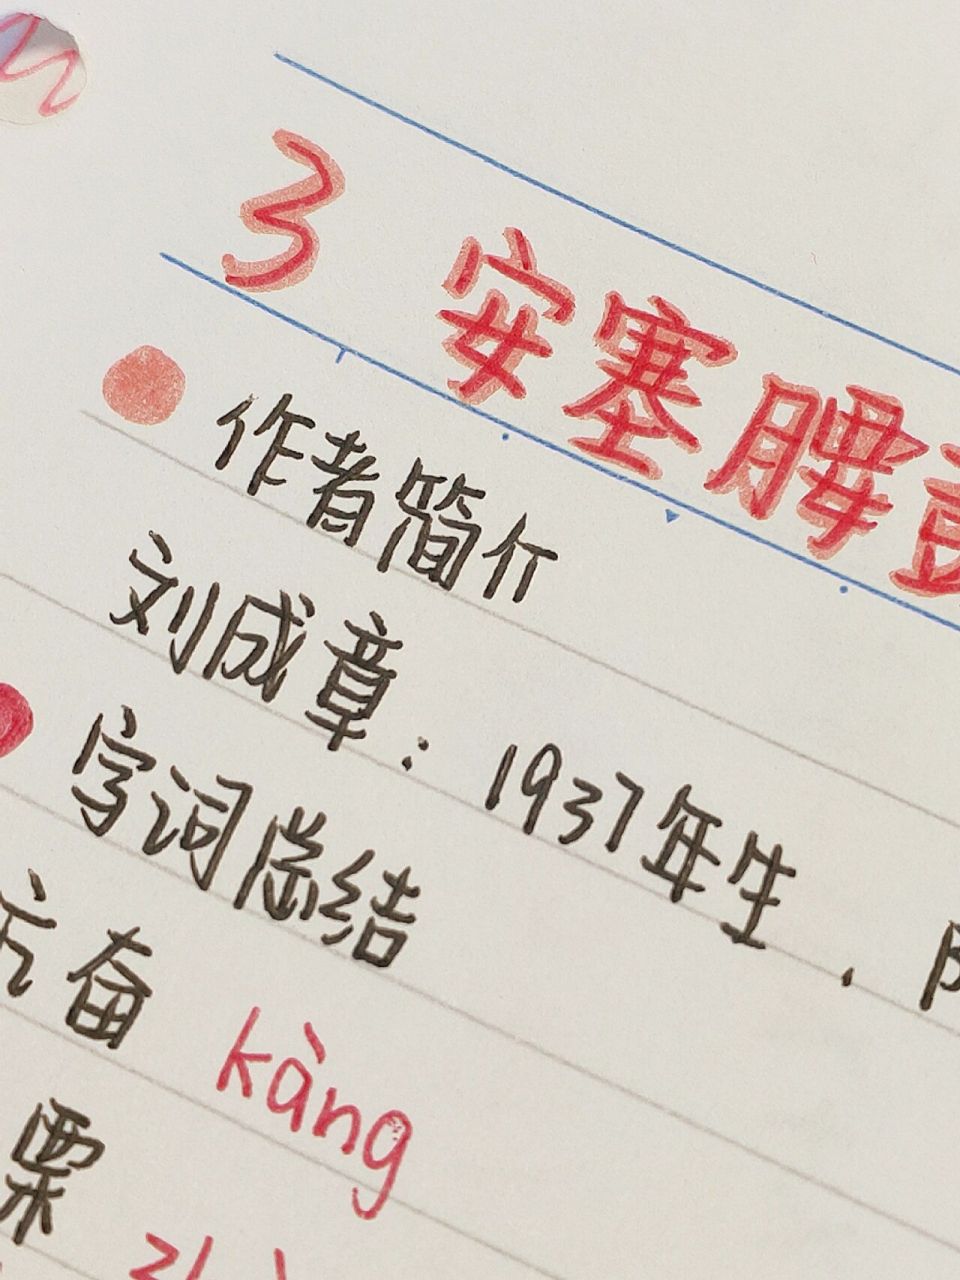 3 安塞腰
作者简介
刘成章：1937年生，
字词总结
亢奋 kàng
栗